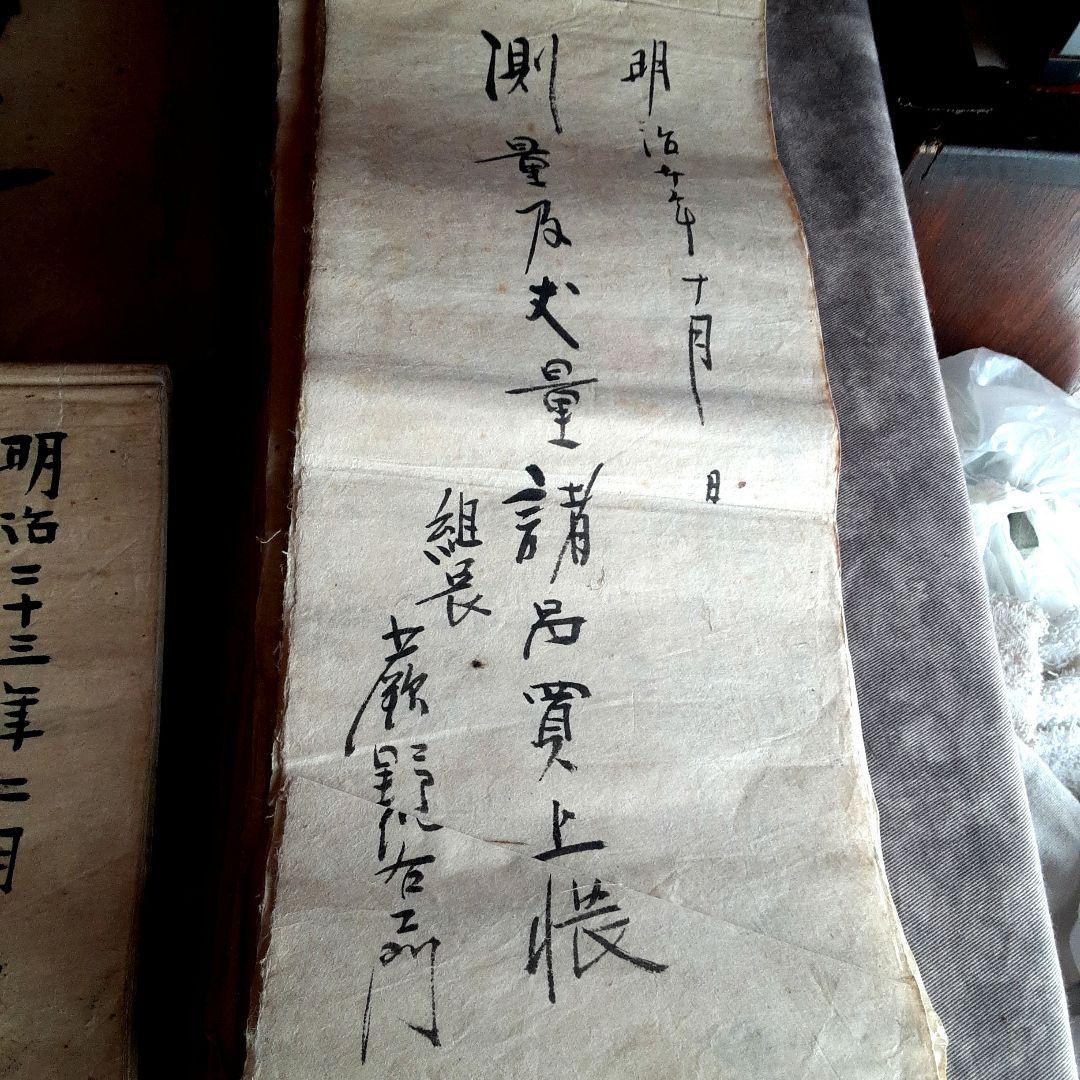 明治廿年十月
日
測量及丈量諸品買上帳
組長
蕨野 右 門
明治二十三年二月